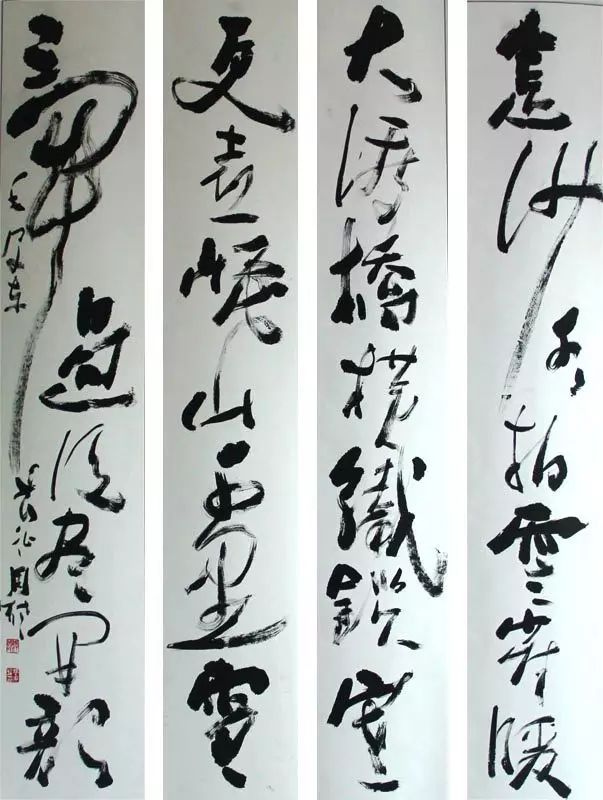 金沙水拍雲崖暖
大渡橋橫鐵鎖寒
更喜岷山千里雪
三軍過後盡開顏
毛澤东 長征